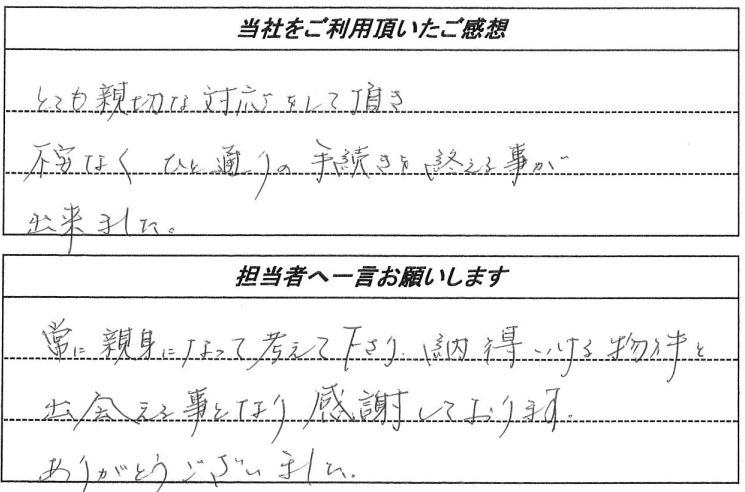 当社をご利用頂いたご感想
とても親切な対応をして頂き
不安なく ひと通りの手続きを終える事が
出来ました。
担当者へ一言お願いします
常に親身になって考えて下さり、納得いける物件と
出会える事となり感謝しております。
ありがとうございました。